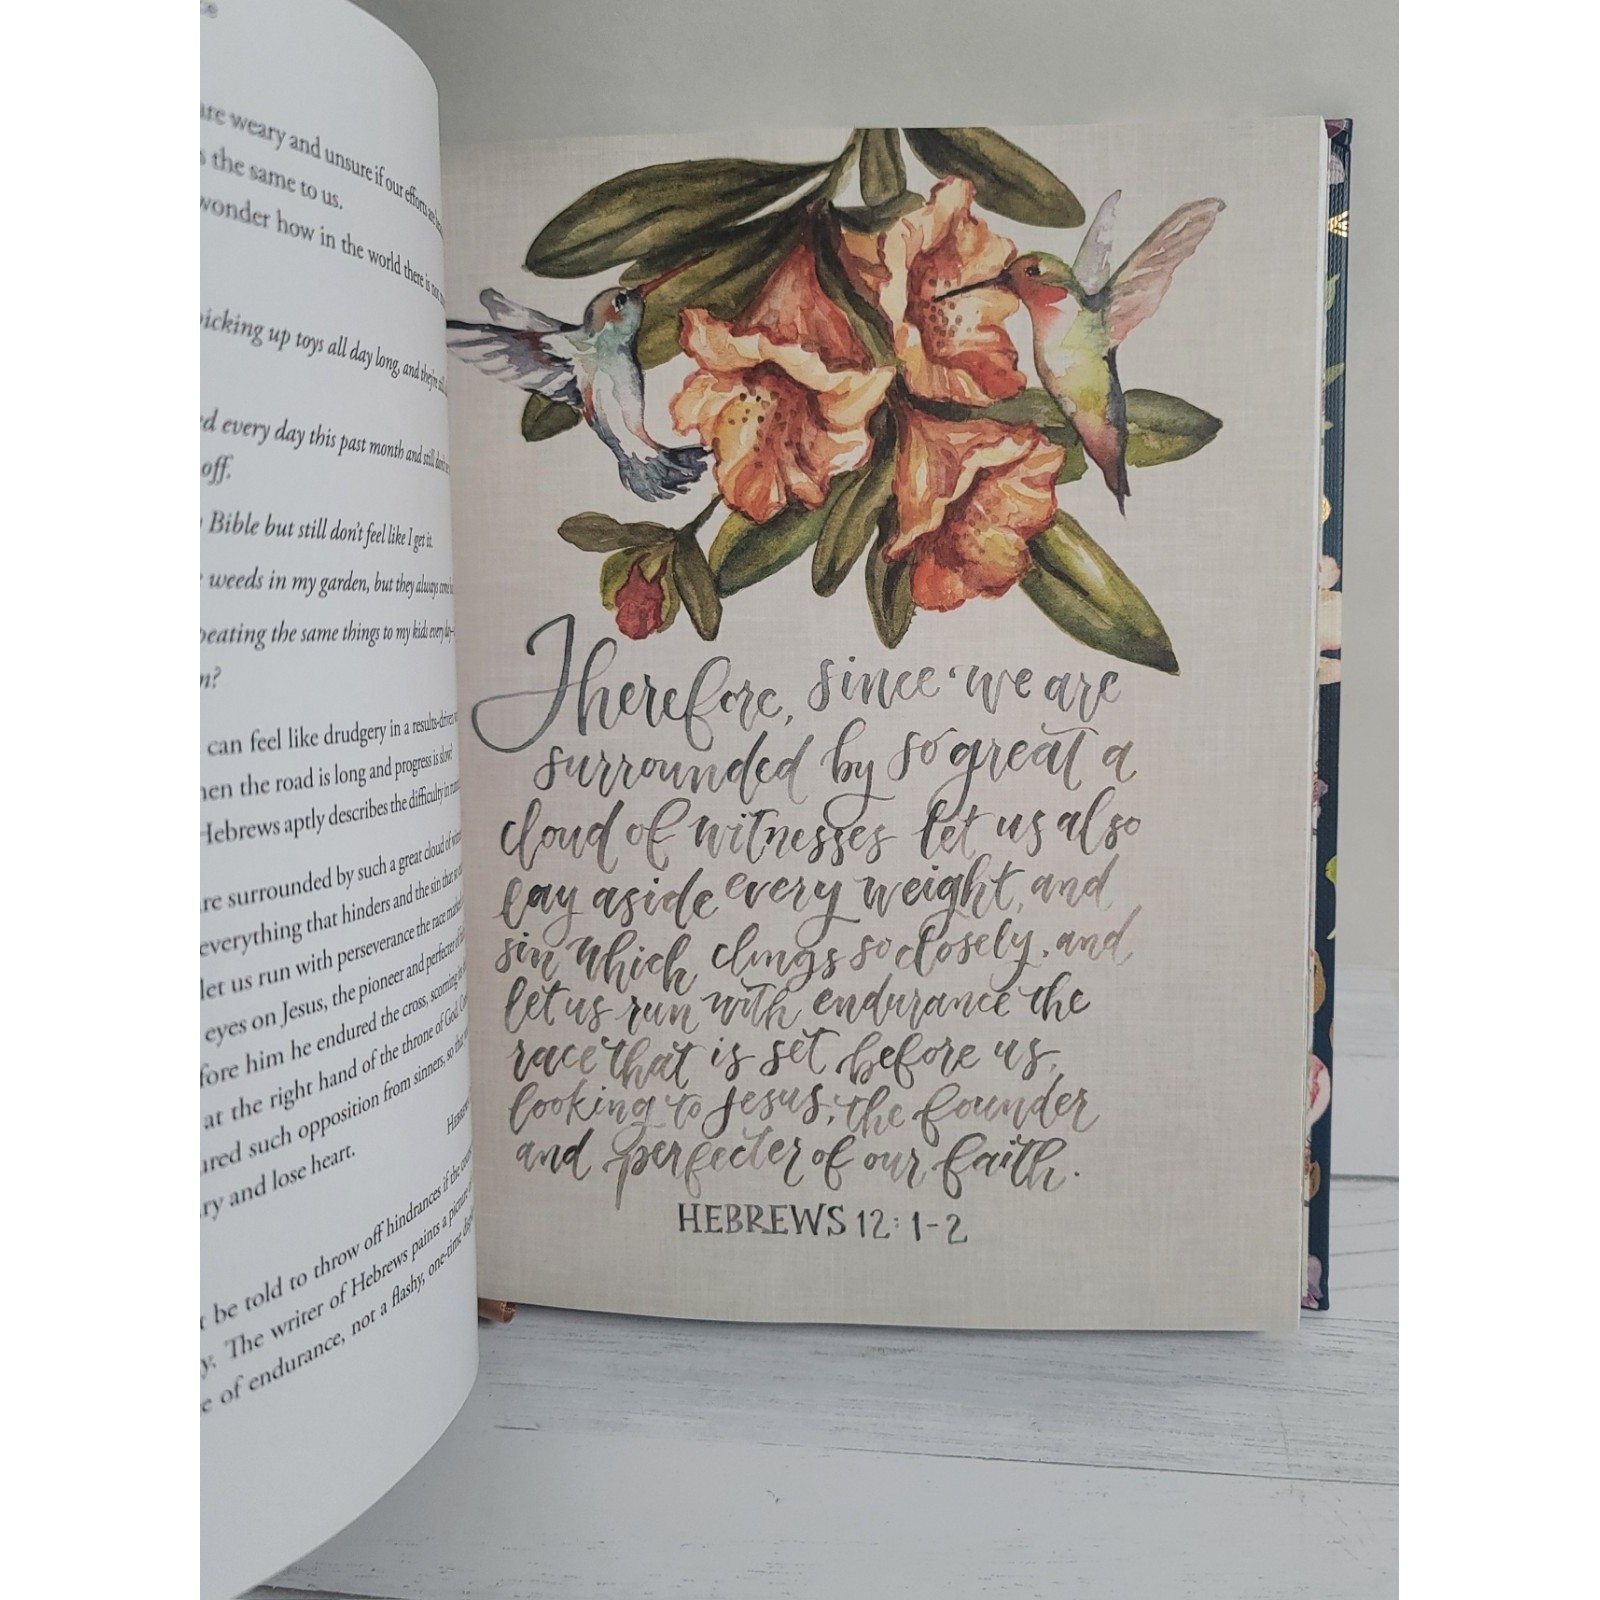 are weary and unsure if our efforts
s the same to us.
wonder how in the world there is not
picking up toys all day long, and they're still
every day this past month and still don't
off.
Bible but still don't feel like I get it.
weeds in my garden, but they always come
peating the same things to my kids every day—
n?
can feel like drudgery in a results-driven
hen the road is long and progress is slow?
Hebrews aptly describes the difficulty in
re surrounded by such a great cloud of
everything that hinders and the sin that so
let us run with perseverance the race marked
eyes on Jesus, the pioneer and perfecter of
fore him he endured the cross, scorning its
at the right hand of the throne of God.
ured such opposition from sinners, so that
ry and lose heart.
be told to throw off hindrances if the
y. The writer of Hebrews paints a picture
e of endurance, not a flashy, one-time
Therefore, since we are
surrounded by so great a
cloud of witnesses let us also
lay aside every weight, and
sin which clings so closely, and
let us run with endurance the
race that is set before us,
looking to Jesus, the founder
and perfecter of our faith.
HEBREWS 12:1-2